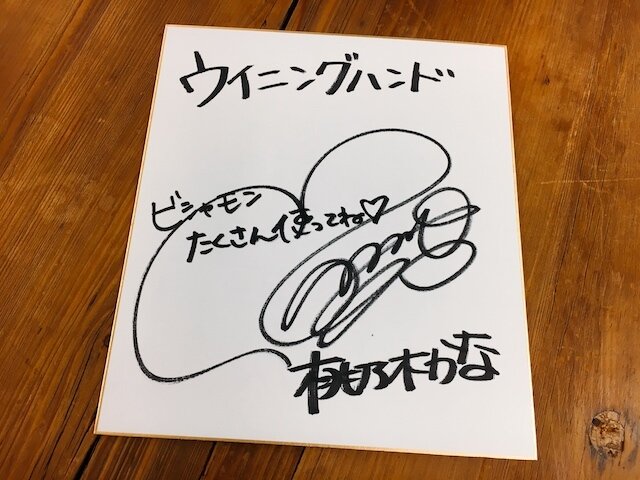 ウイニングハンド
ビシャモン
たくさん使ってね♡
桃乃木かな